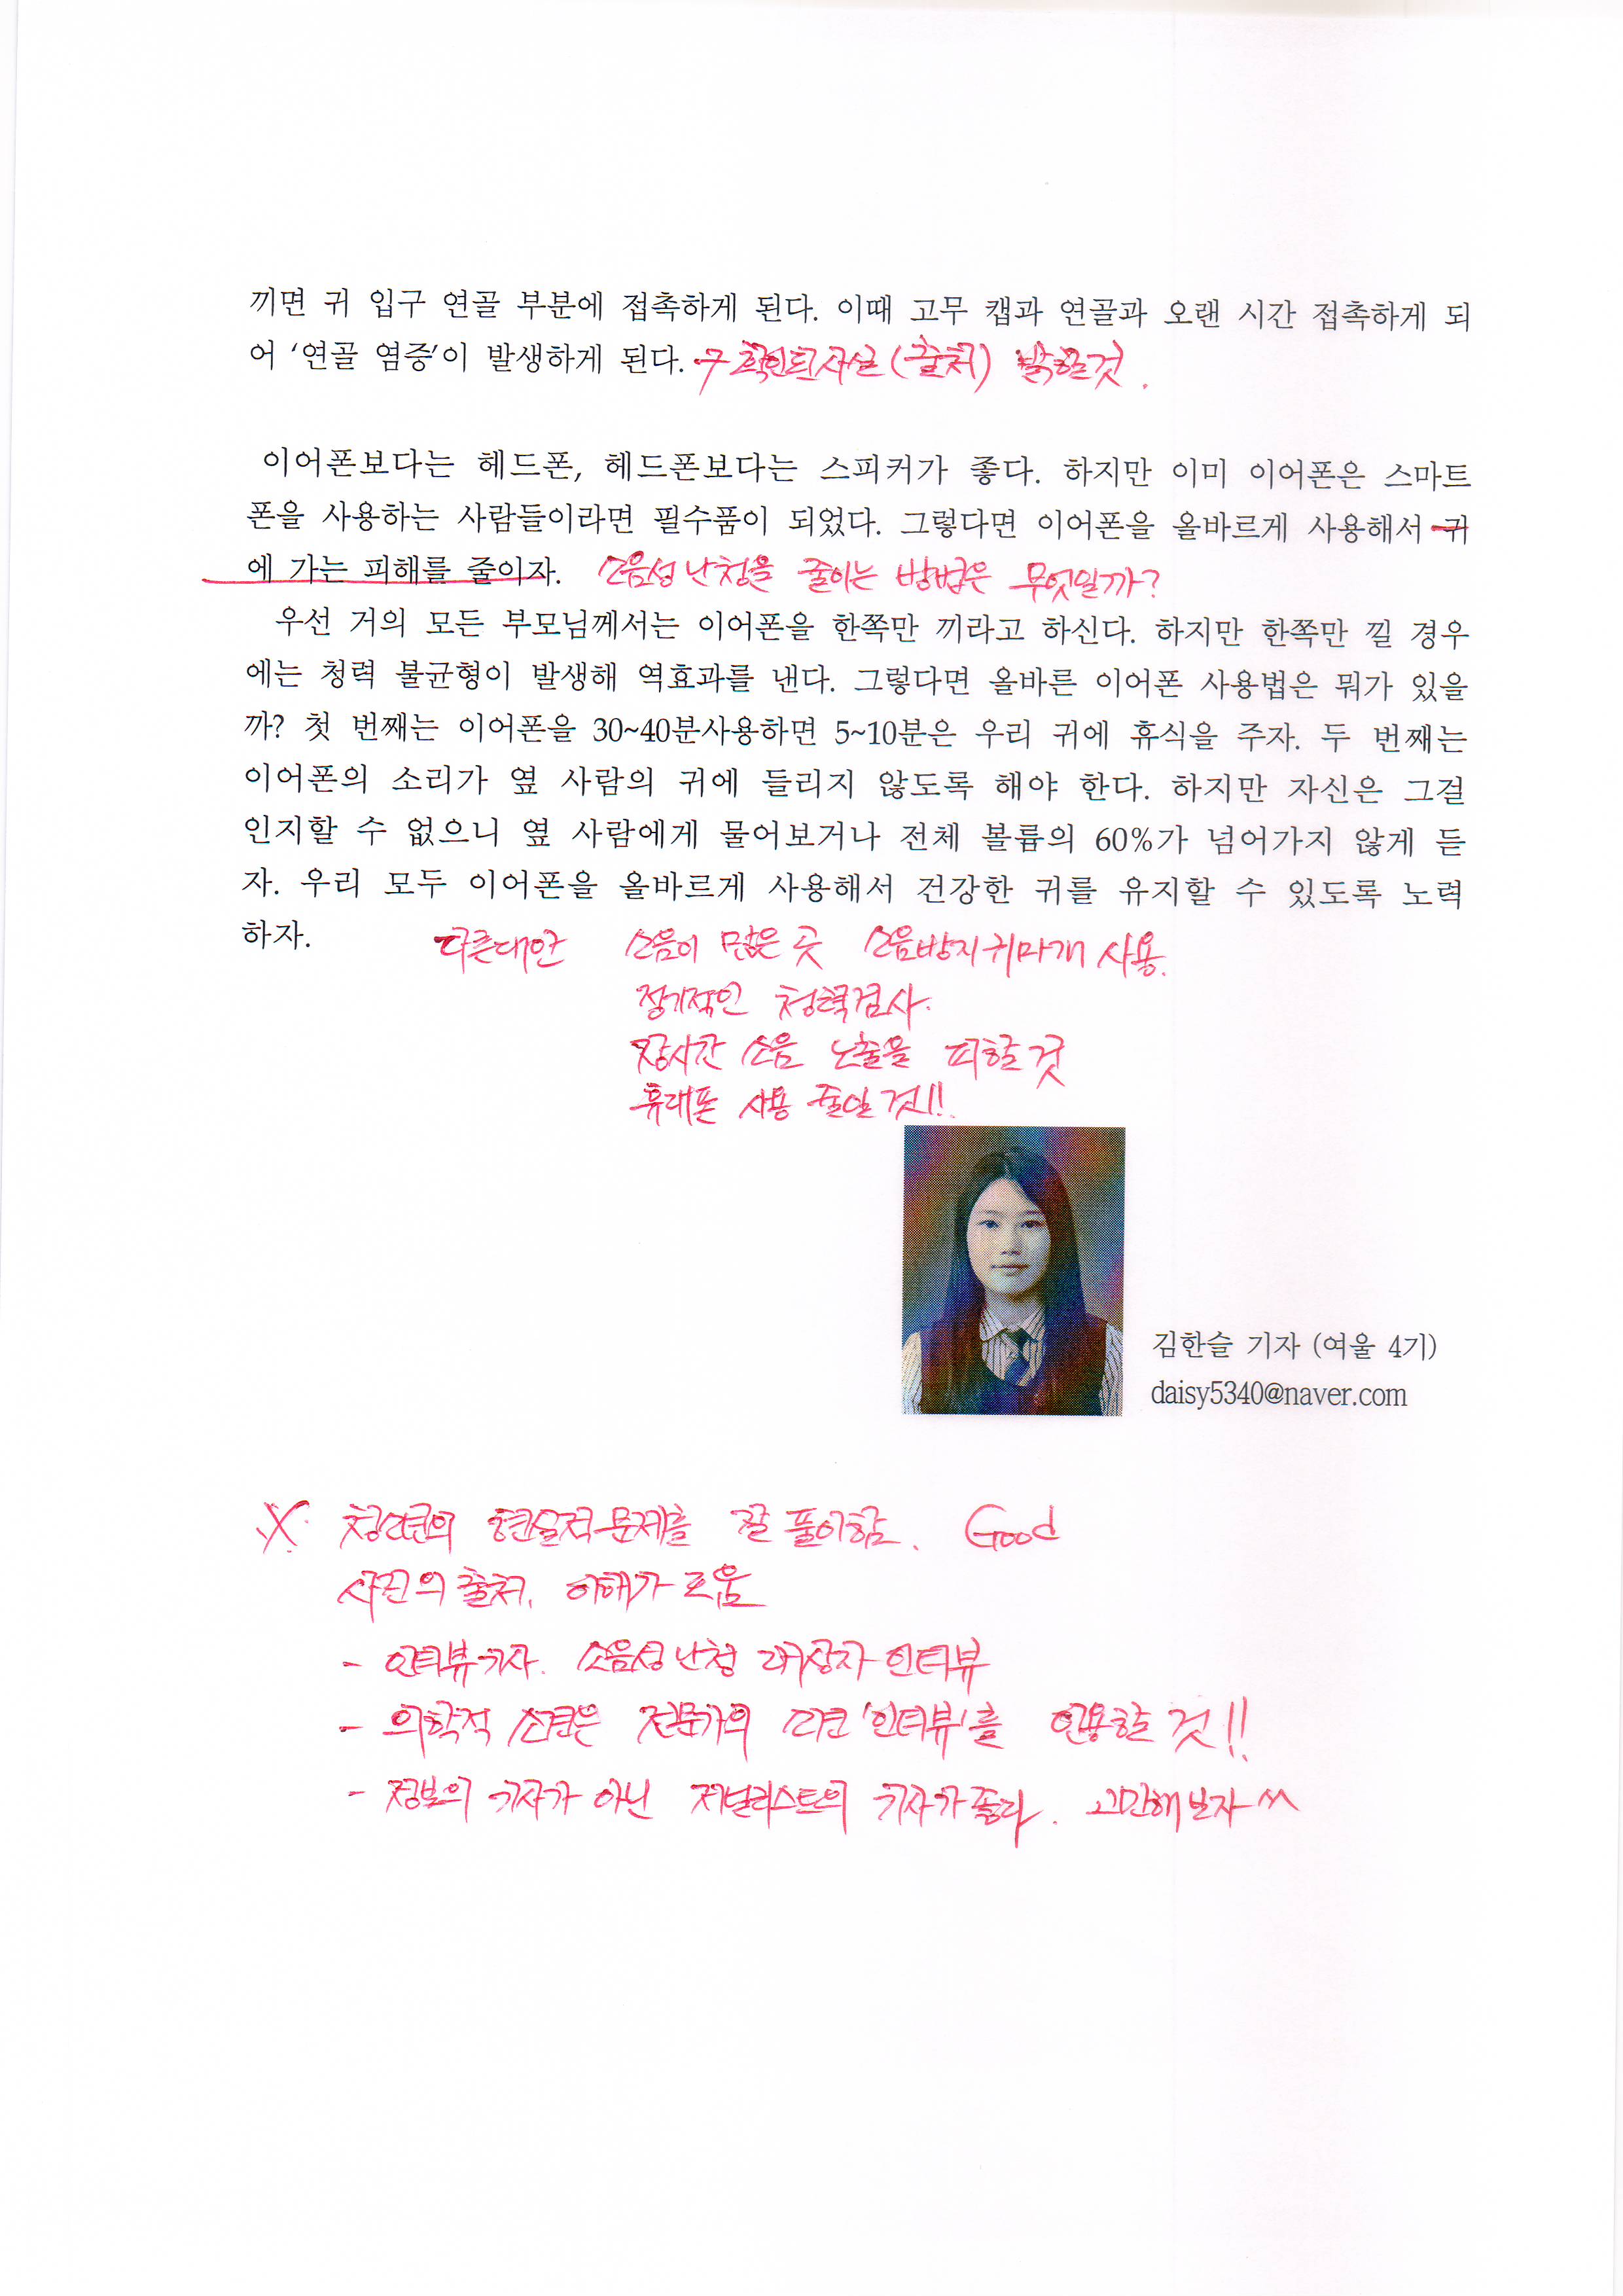 끼면 귀 입구 연골 부분에 접촉하게 된다. 이때 고무 캡과 연골과 오랜 시간 접촉하게 되
어 ‘연골 염증’이 발생하게 된다. 확인된 사실(출처) 밝힐것.
이어폰보다는 헤드폰, 헤드폰보다는 스피커가 좋다. 하지만 이미 이어폰은 스마트
폰을 사용하는 사람들이라면 필수품이 되었다. 그렇다면 이어폰을 올바르게 사용해서 귀
에 가는 피해를 줄이자. 소음성 난청을 줄이는 방법은 무엇일까?
우선 거의 모든 부모님께서는 이어폰을 한쪽만 끼라고 하신다. 하지만 한쪽만 낄 경우
에는 청력 불균형이 발생해 역효과를 낸다. 그렇다면 올바른 이어폰 사용법은 뭐가 있을
까? 첫 번째는 이어폰을 30~40분사용하면 5~10분은 우리 귀에 휴식을 주자. 두 번째는
이어폰의 소리가 옆 사람의 귀에 들리지 않도록 해야 한다. 하지만 자신은 그걸
인지할 수 없으니 옆 사람에게 물어보거나 전체 볼륨의 60%가 넘어가지 않게 듣
자. 우리 모두 이어폰을 올바르게 사용해서 건강한 귀를 유지할 수 있도록 노력
하자. 다른대안 소음이 많은 곳 소음방지귀마개 사용.
정기적인 청력검사.
장시간 소음 노출을 피할 것
휴대폰 사용 줄일 것!!
김한슬 기자 (여울 4기)
daisy5340@naver.com
※ 청소년의 현실적 문제를 잘 풀이함. Good
사진의 출처, 이해가
- 인터뷰기사. 소음성 난청 대상자 인터뷰
- 의학적 소견은 전문가의 소견 '인터뷰'를 인용할 것!!
- 정보의 기사가 아닌 저널리스트의 기사가 좋다. 고민해보자 ^^